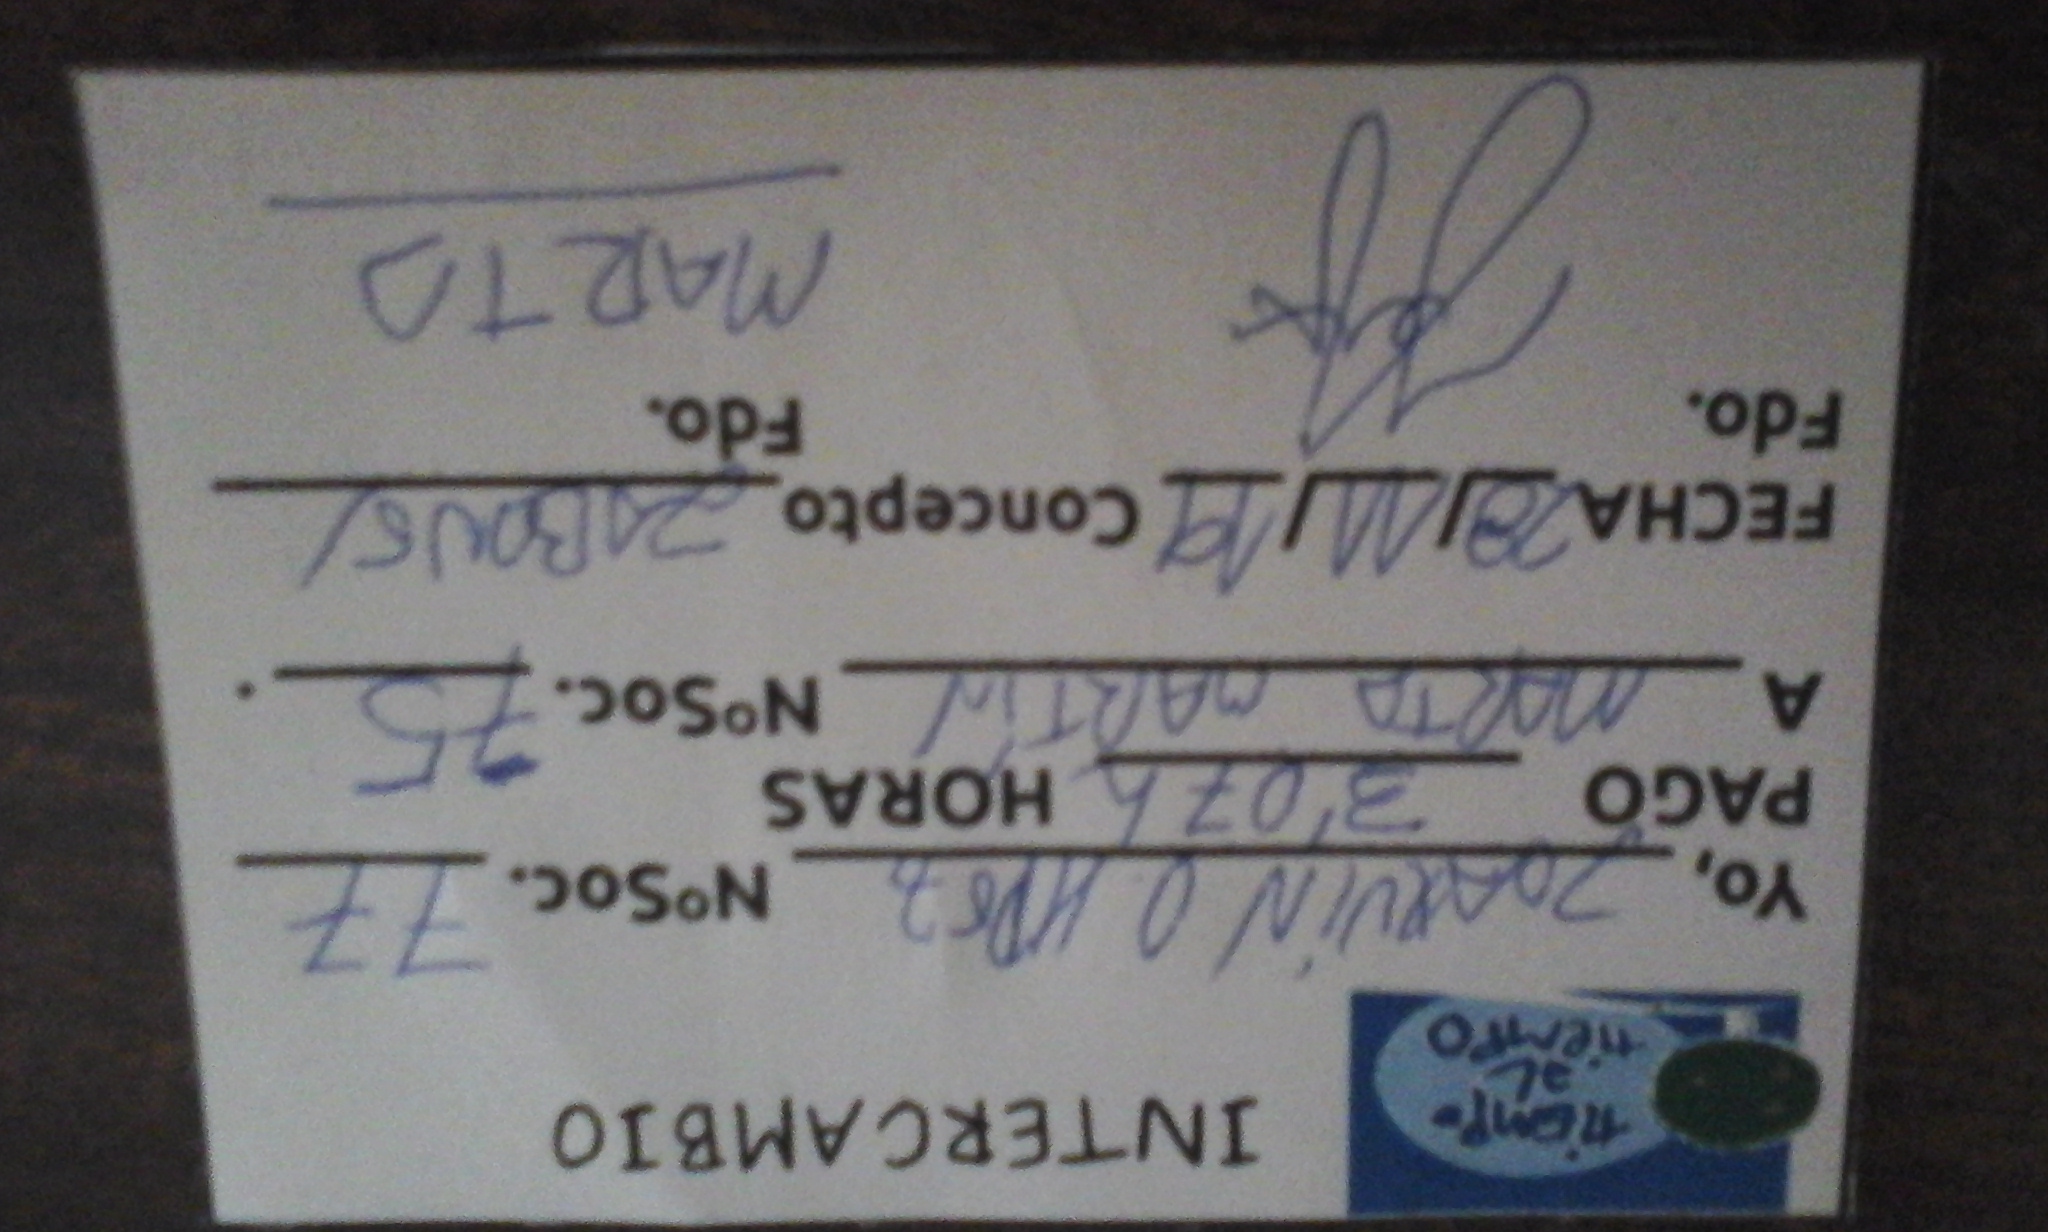 tiempo
al
tiempo
INTERCAMBIO
Yo, JOAQUÍN O. HDEZ NºSoc. 77
PAGO 3'07 h HORAS
A MARTA MARTÍN NºSoc. 75.
FECHA 28/11/19 Concepto JABONES/
Fdo. Fdo.
MARTA